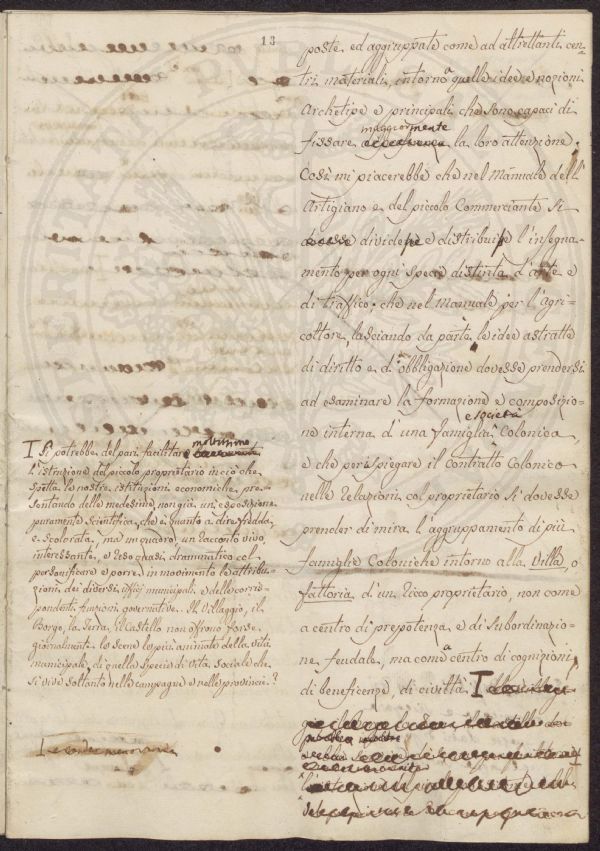 13
poste, ed aggruppate come ad altrettanti cen-
tri materiali intorno a quelle idee e nozioni
Archetipe e principali che sono capaci di
maggiormente
fissare la loro attenzione.
Così mi piacerebbe che nel Manuale dell'
Artigiano e del piccolo Commerciante si
dividesse e distribuisse l'insegna-
mento per ogni specie distinta d'arte e
di traffico; che nel Manuale per l'agri-
coltore, lasciando da parte le idee astratte
di diritto e d'obbligazione dovesse prendersi
ad esaminare la formazione e composizio-
e società
ne interna d'una famiglia Colonica,
e che per ispiegare il Contratto Colonico
nelle relazioni col proprietario si dovesse
prender di mira l'aggruppamento di più
famiglie Coloniche intorno alla Villa, o
fattoria d'un ricco proprietario, non come
a centro di prepotenza e di subordinazio-
ne feudale, ma come a centro di cognizioni,
di beneficenze, di civiltà.
Si potrebbe del pari facilitare moltissimo
l'istruzione del piccolo proprietario in ciò che
spetta le nostre istituzioni economiche, pre-
sentando delle medesime, non già un'esposizione
puramente scientifica, che è quanto a dire fredda
e scolorata, ma un quadro, un racconto vivo,
interessante, e reso quasi drammatico col
personificare e porre in movimento le attribu-
zioni dei diversi uffizj municipali e delle corris-
pondenti funzioni governative. Il Villaggio, il
Borgo, la Terra, il Castello non offrono forse
giornalmente le scene le più animate della vita
municipale, di quella specie di vita sociale che
si vive soltanto nelle campagne e nelle provincie?